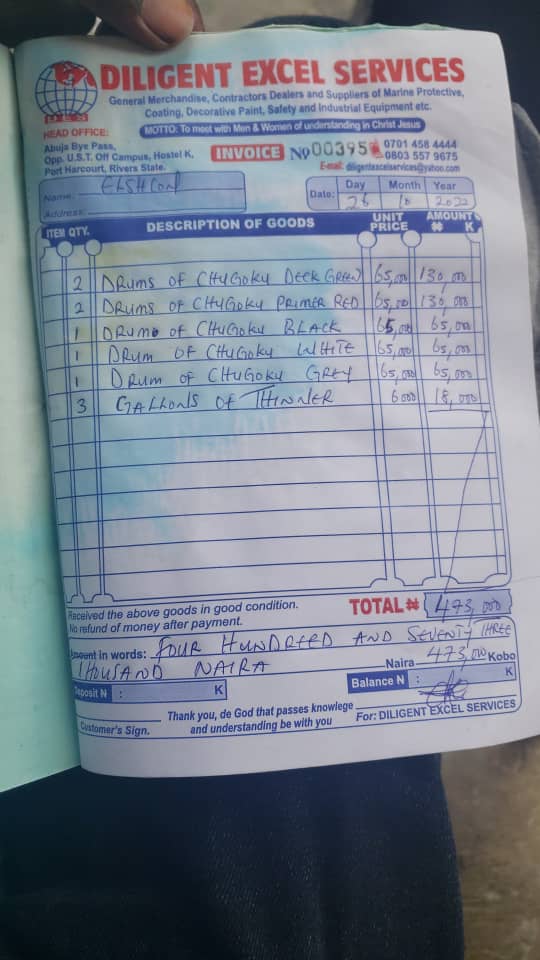 DILIGENT EXCEL SERVICES
General Merchandise, Contractors Dealers and Suppliers of Marine Protective,
Coating, Decorative Paint, Safety and Industrial Equipment etc.
MOTTO: To meet with Men & Women of understanding in Christ Jesus
HEAD OFFICE:
Abuja Bye Pass,
Opp. U.S.T. Off Campus, Hostel K,
Port Harcourt, Rivers State.
INVOICE No 00395
0701 458 4444
0803 557 9675
E-mail: diligentexcelservices@yahoo.com
Name: ELSHCON
Address:
Date: Day Month Year
28 10 2022
ITEM QTY. DESCRIPTION OF GOODS UNIT PRICE AMOUNT ₦ K
2 DRUMS OF CHUGOKU DECK GREEN 65,000 130,000
2 DRUMS OF CHUGOKU PRIMER RED 65,000 130,000
1 DRUM OF CHUGOKU BLACK 65,000 65,000
1 DRUM OF CHUGOKU WHITE 65,000 65,000
1 DRUM OF CHUGOKU GREY 65,000 65,000
3 GALLONS OF THINNER 6000 18,000
Received the above goods in good condition.
No refund of money after payment.
TOTAL ₦ 473,000
Amount in words: FOUR HUNDREED AND SEVENTY THREE
THOUSAND NAIRA Naira 473,000 Kobo
Deposit N : K
Balance N : K
Customer's Sign.
Thank you, de God that passes knowlege
and understanding be with you
For: DILIGENT EXCEL SERVICES